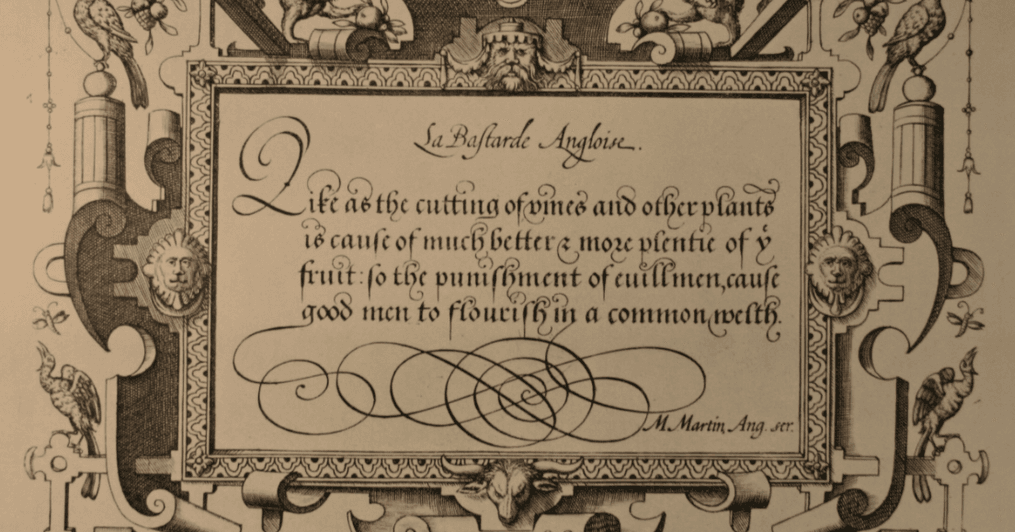 La Bastarde Angloise.
Like as the cutting of vines and other plants
is cause of much better & more plentie of yͤ
fruit: so the punishment of euill men, cause
good men to flourish in a common welth.
M. Martin Ang. scr.